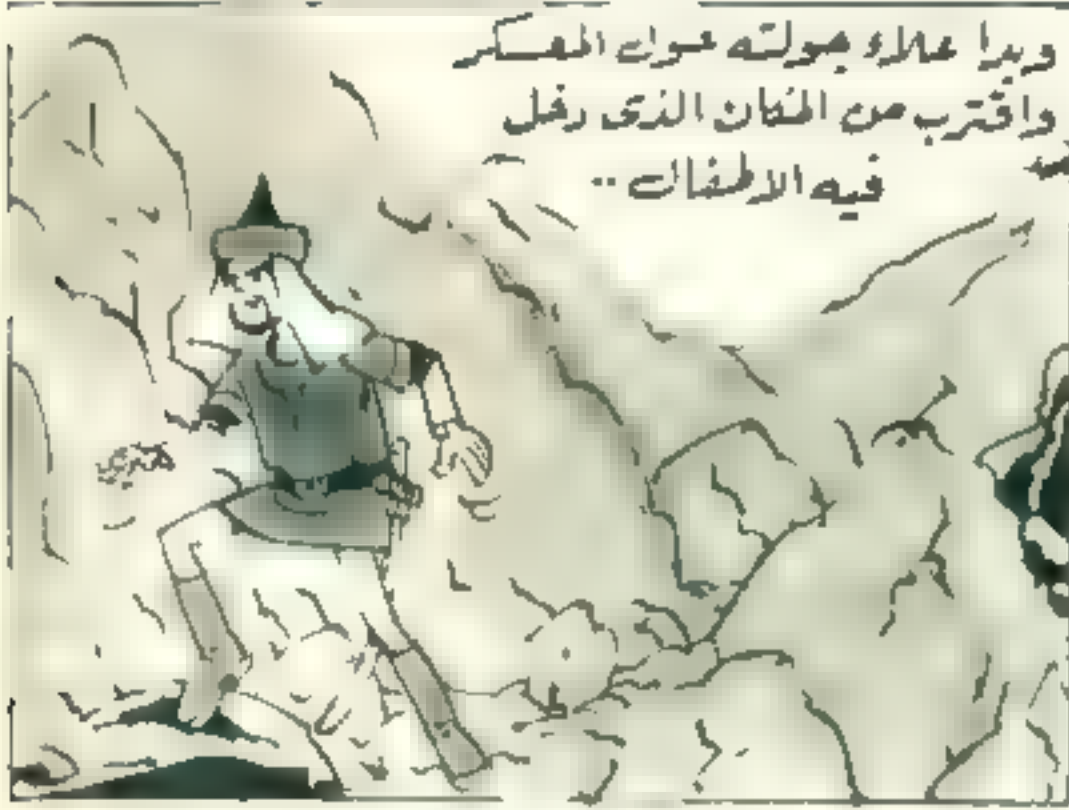 وبدا علاء جولته حول المعسكر
واقترب من المكان الذى دخل
فيه الاطفال ..